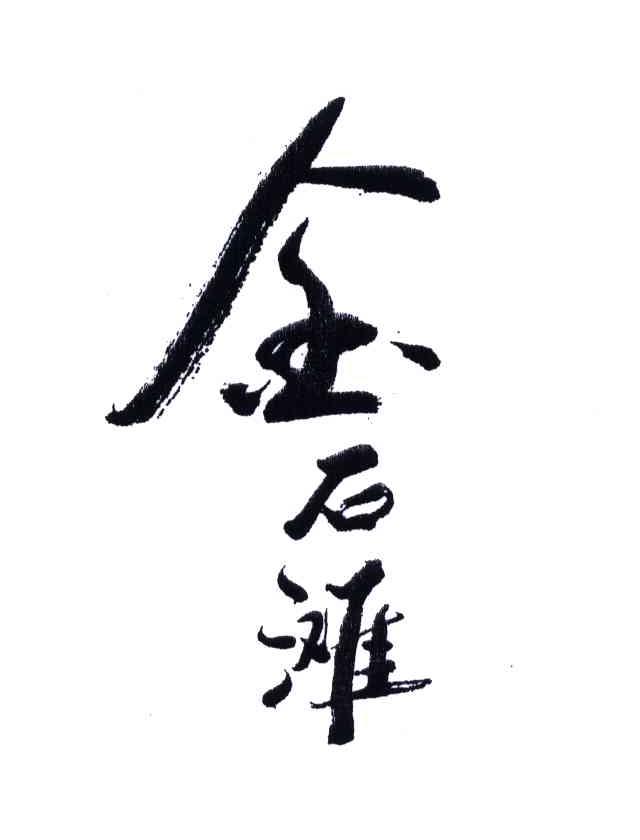 金石滩